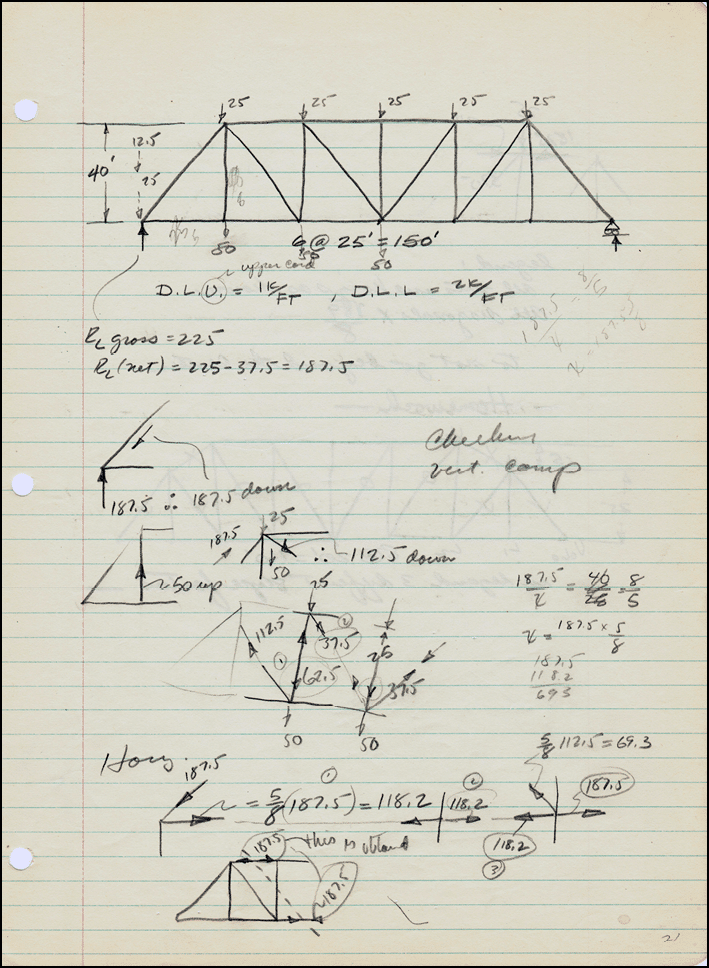 25 25 25 25 25
12.5
40'
25
50 50 50
6 @ 25' = 150'
upper cord
D.L.U. = 1K/FT , D.L.L = 2K/FT
187.5/x = 8/5
RL gross = 225
RL (net) = 225 - 37.5 = 187.5
Checking
vert. comp
187.5 ∴ 187.5 down
25
187.5
50
∴ 112.5 down
50 up
187.5/x = 40/25 = 8/5
x = 187.5 x 5/8
187.5
118.2
693
25
112.5 ① 62.5 ② 37.5 25 37.5
50 50
5/8 112.5 = 69.3
Horiz.
187.5
= 5/8 (187.5) = 118.2
①
② 118.2
187.5
118.2
③
187.5 this is
187.5
21